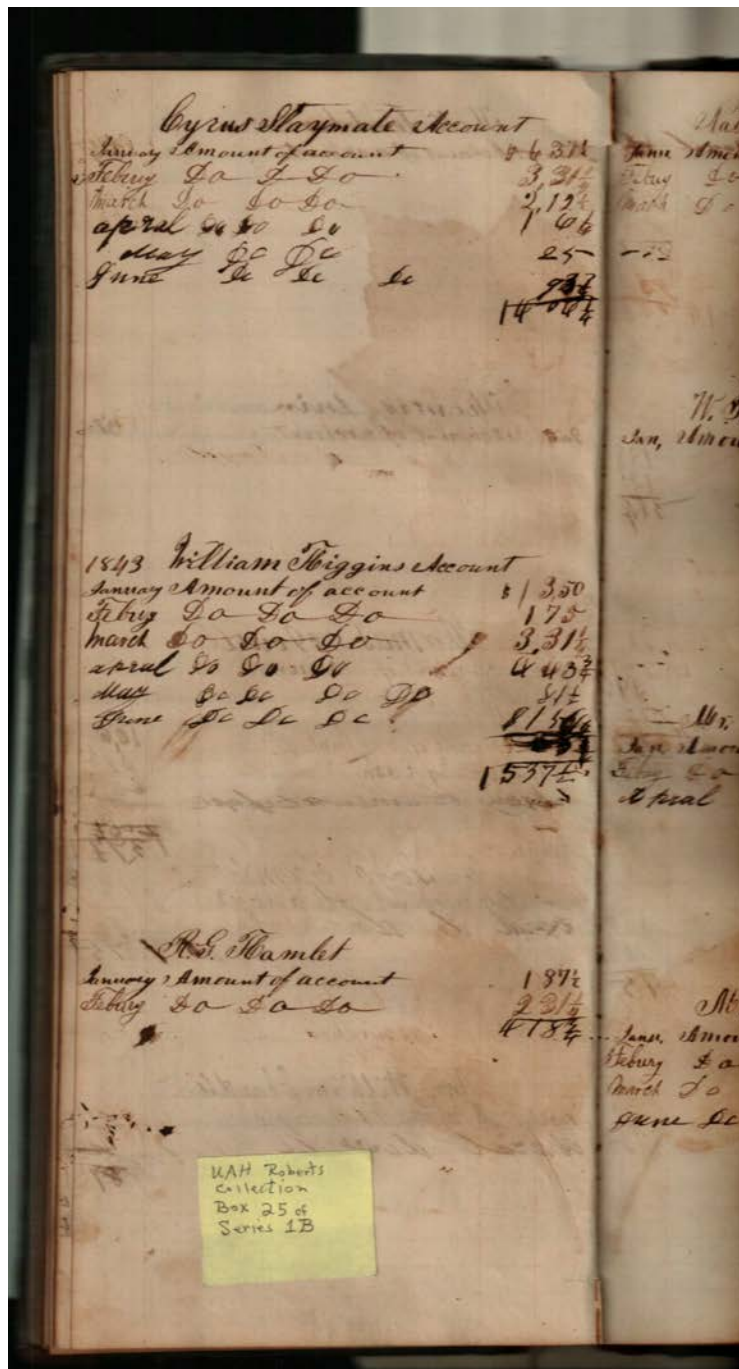 Cyrus Slaymate Account
January Amount of account $ 6 37½
Febury Do Do Do 3,31¼
March Do Do Do 2,12½
apral Do Do Do 1 6¼
May Do Do 25
June Do Do Do 93¾
14 06¼
1843 William Higgins Account
January Amount of account $ 1 3,50
Febury Do Do Do 1 75
March Do Do Do 3,31¼
apral Do Do Do 4 43¾
May Do Do Do Do 81¼
June Do Do Do
1 537½
R. G. Hamlet
January Amount of account 1 87½
Febury Do Do Do 2 31¼
4 18¾
UAH Roberts
Collection
Box 25 of
Series 1B
June Amou
Febury Do
March Do
W.
Jan, Amou
Mr.
June Amou
Febury Do
Apral
Janu, Amou
Febury Do
March Do
June Do